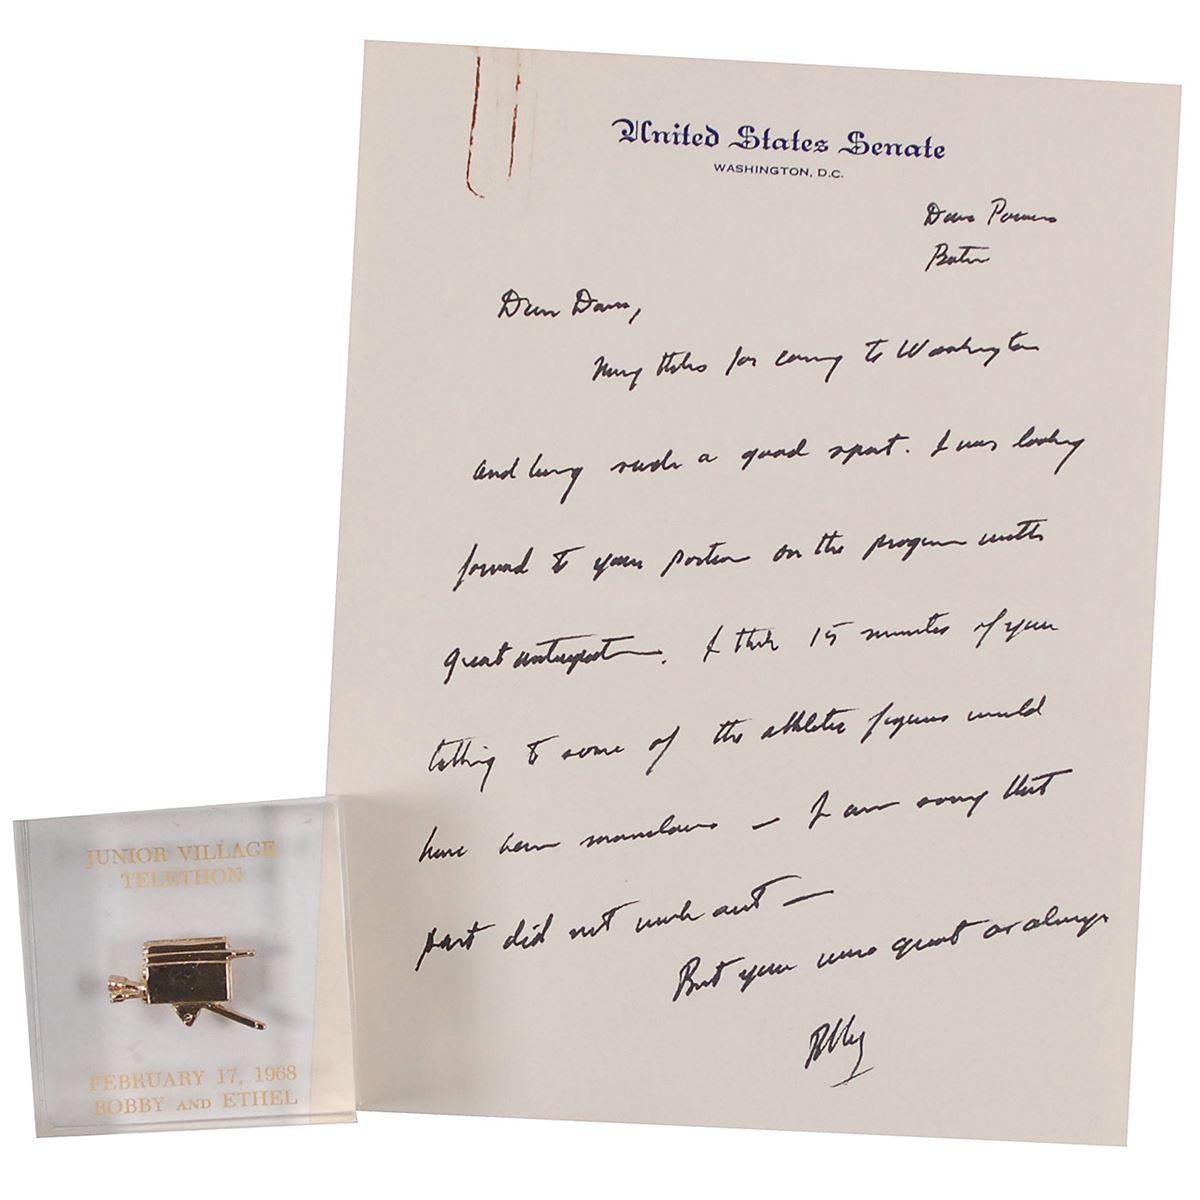 United States Senate
WASHINGTON, D.C.
Dave Powers
Boston
Dear Dave,
Many thanks for coming to Washington
and being such a good sport. I was looking
forward to your portion on the program with
great anticipation. I think 15 minutes of your
talking to some of the athletic figures would
have been marvelous — I am sorry that
part did not work out —
But you were great as always
Bobby
JUNIOR VILLAGE
TELETHON
FEBRUARY 17, 1968
BOBBY AND ETHEL